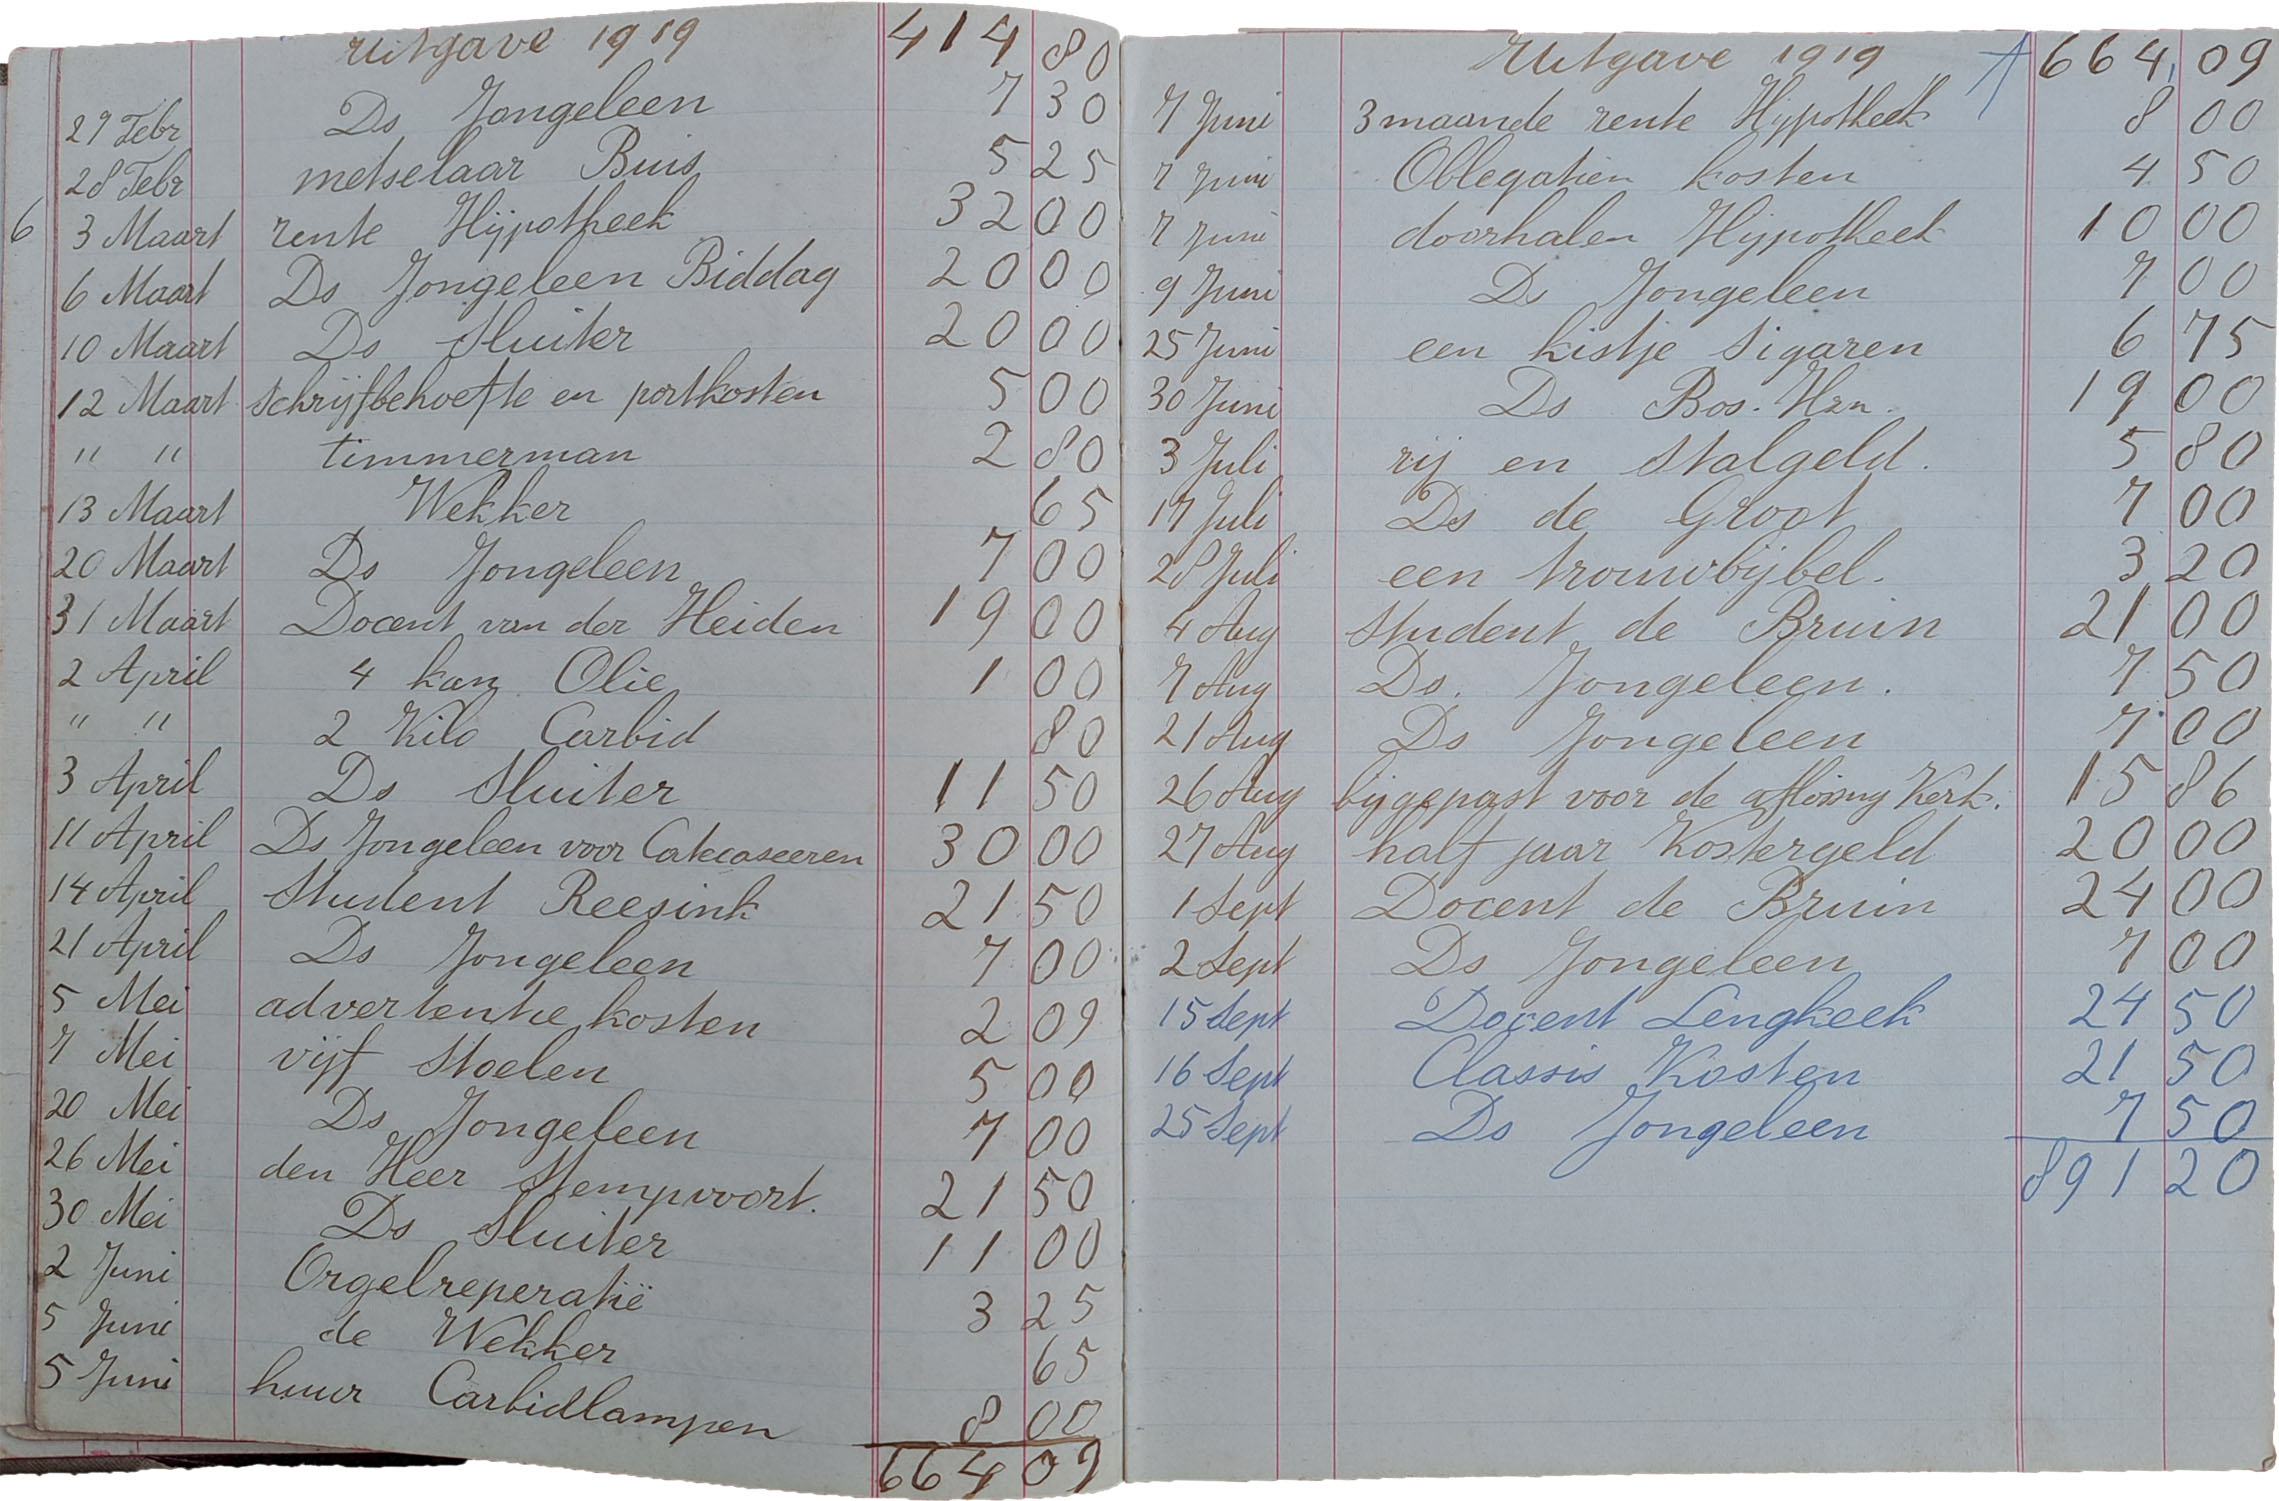 Uitgave 1919 414 80
27 Febr Ds Jongeleen 7 30
28 Febr metselaar Buis 5 25
6 3 Maart rente Hijpotheek 32 00
6 Maart Ds Jongeleen Biddag 20 00
10 Maart Ds Sluiter 20 00
12 Maart schrijfbehoefte en portkosten 5 00
" " timmerman 2 80
13 Maart Wekker 65
20 Maart Ds Jongeleen 7 00
31 Maart Docent van der Heiden 19 00
2 April 4 kan Olie 1 00
" " 2 Kilo Carbid 80
3 April Ds Sluiter 11 50
11 April Ds Jongeleen voor Catecaseeren 30 00
14 April Student Reesink 21 50
21 April Ds Jongeleen 7 00
5 Mei advertentie kosten 2 09
7 Mei vijf Stoelen 5 00
20 Mei Ds Jongeleen 7 00
26 Mei den Heer Stempvoort. 21 50
30 Mei Ds Sluiter 11 00
2 Juni Orgelreperatië 3 25
5 Juni de Wekker 65
5 Juni huur Carbidlampen 8 00
664 09
Uitgave 1919 664 09
7 Juni 3 maande rente Hijpotheek 8 00
7 Juni Oblegatien kosten 4 50
7 Juni doorhalen Hijpotheek 10 00
9 Juni Ds Jongeleen 7 00
25 Juni een kistje sigaren 6 75
30 Juni Ds Bos. Hzn. 19 00
3 Juli rij en stalgeld. 5 80
17 Juli Ds de Groot 7 00
28 Juli een trouwbijbel. 3 20
4 Aug Student de Bruin 21 00
7 Aug Ds. Jongeleen. 7 50
21 Aug Ds Jongeleen 7 00
26 Aug bijgepast voor de aflosing Kerk. 15 86
27 Aug half jaar Kostergeld 20 00
1 Sept Docent de Bruin 24 00
2 Sept Ds Jongeleen 7 00
15 Sept Docent Lengkeek 24 50
16 Sept Classis Kosten 21 50
25 Sept Ds Jongeleen 7 50
891 20